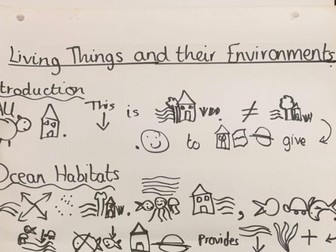 Living Things and their Environments
troduction
This is ≠
AU
. to give
Ocean Habitats
. ,
Provides +